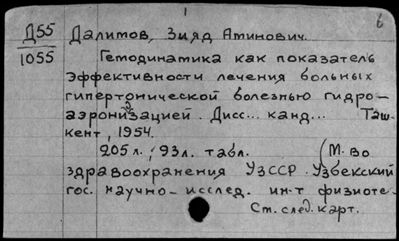 Д55
1055
Далимов, Зияд Атинович.
Гемодинатика как показатель
эффективности лечения больных
гипертонической болезнью гидро-
аэронизацией. Дисс... канд... Таш-
кент, 1954.
205 л.; 93 л. табл. (М. во
здравоохранения УзССР. Узбекский
гос. научно-исслед. ин-т физиоте-
См. след. карт.